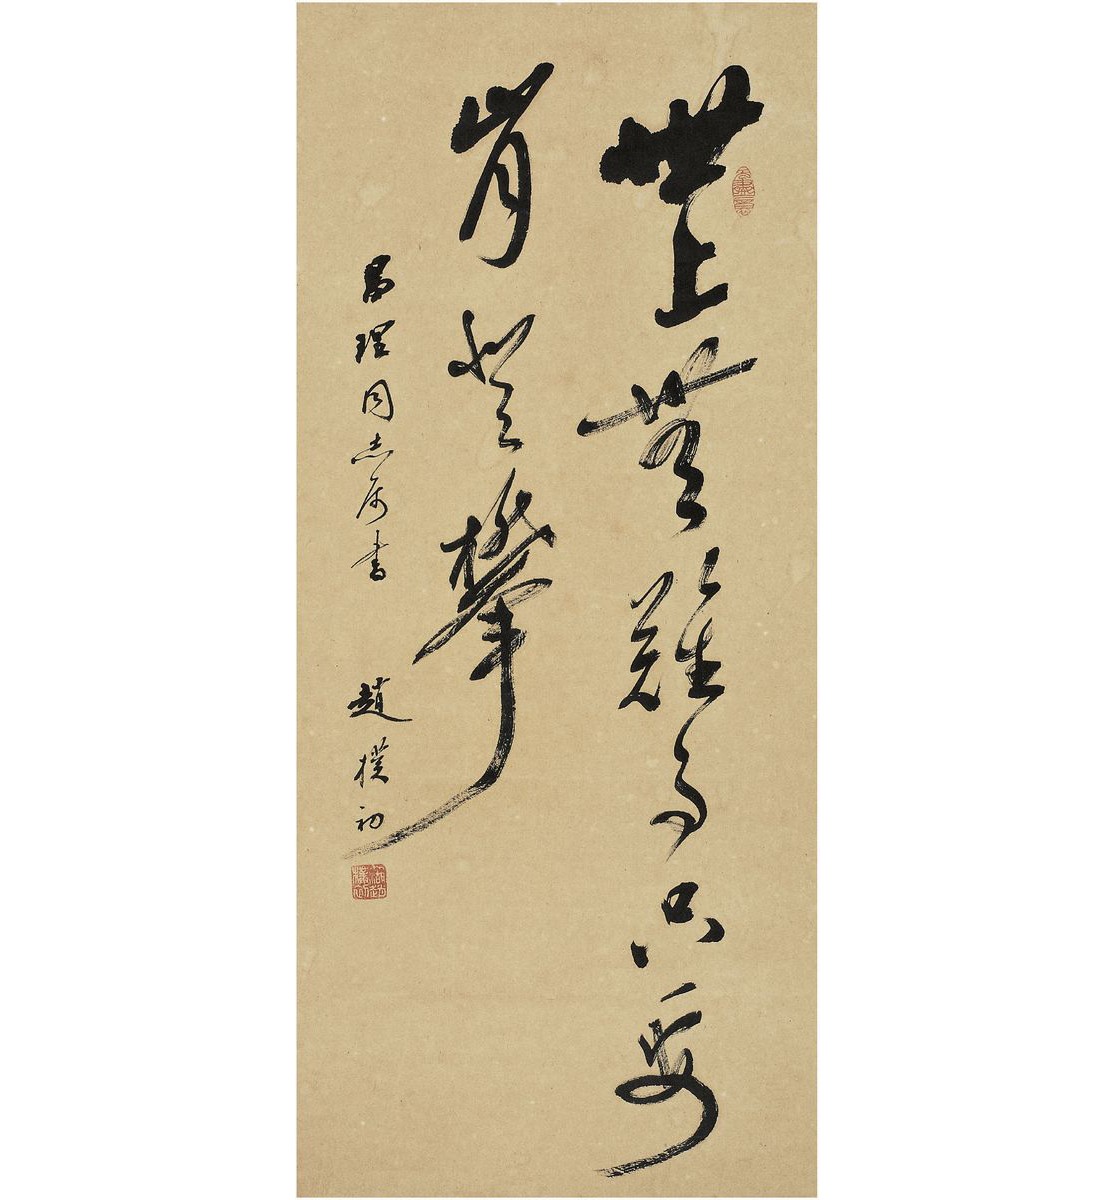 世上無難事只要
肯登攀
易理同志属书
趙樸初